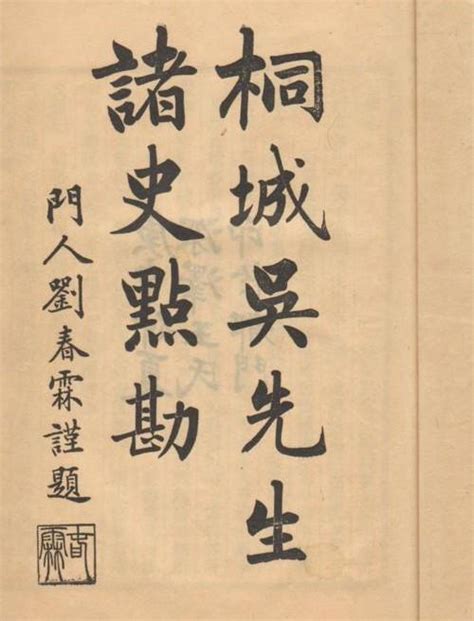 桐城吳先生
諸史點勘
門人劉春霖謹題
春霖